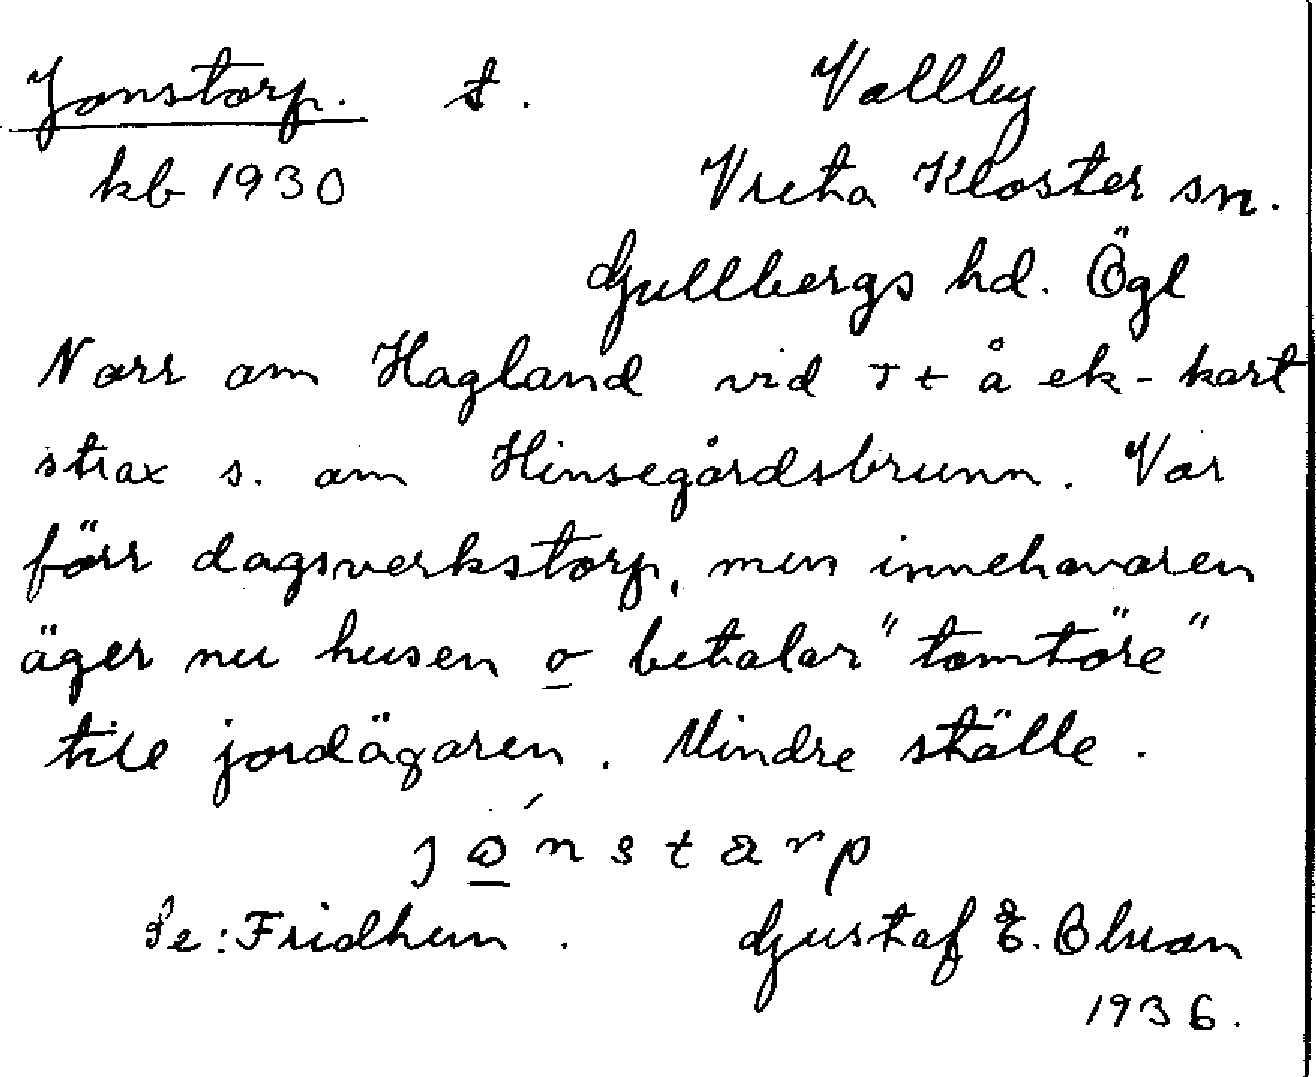 Jonstorp. t. Vallby
kb 1930 Vreta Kloster sn.
Gullbergs hd. Ögl
Norr om Hagland vid rt å ek-kart
strax s. om Hinsegårdsbrunn. Var
förr dagsverkstorp, men innehavaren
äger nu husen o betalar "tomtöre"
till jordägaren. Mindre ställe.
Se: Fridhem. Gustaf E.
1936.